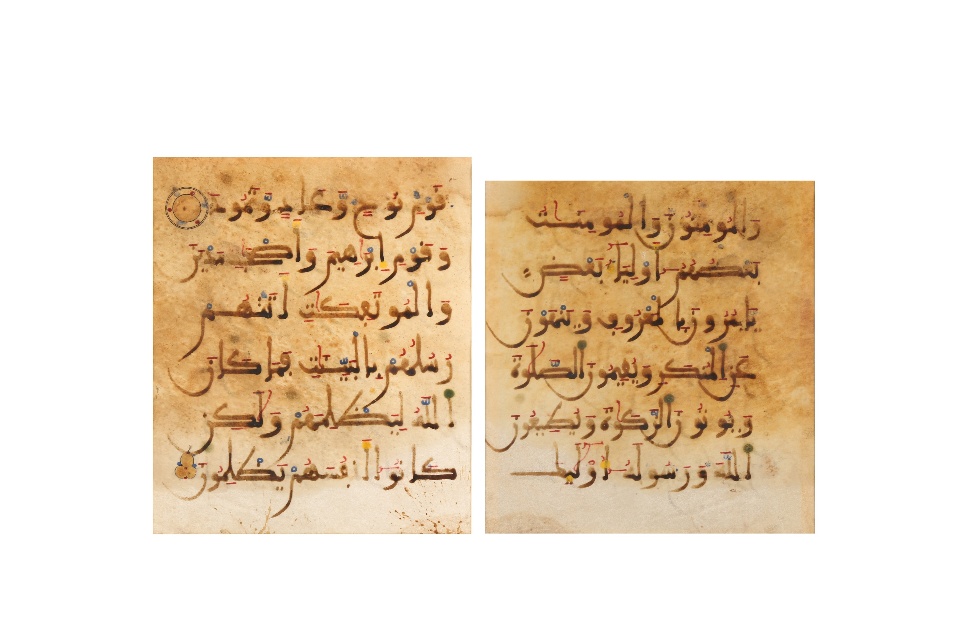 قَوْمِ نُوحٍ وَعَادٍ وَثَمُودَ
وَقَوْمِ إِبْرَاهِيمَ وَأَصْحَٰبِ مَدْيَنَ
وَالْمُوتَفِكَٰتِ أَتَتْهُمْ
رُسُلُهُم بِالْبَيِّنَٰتِ فَمَا كَانَ
اللَّهُ لِيَظْلِمَهُمْ وَلَٰكِن
كَانُوا أَنفُسَهُمْ يَظْلِمُونَ
وَالْمُومِنُونَ وَالْمُومِنَٰتُ
بَعْضُهُمْ أَوْلِيَاءُ بَعْضٍ
يَامُرُونَ بِالْمَعْرُوفِ وَيَنْهَوْنَ
عَنِ الْمُنكَرِ وَيُقِيمُونَ الصَّلَوٰةَ
وَيُوتُونَ الزَّكَوٰةَ وَيُطِيعُونَ
اللَّهَ وَرَسُولَهُ أُوْلَٰئِكَ